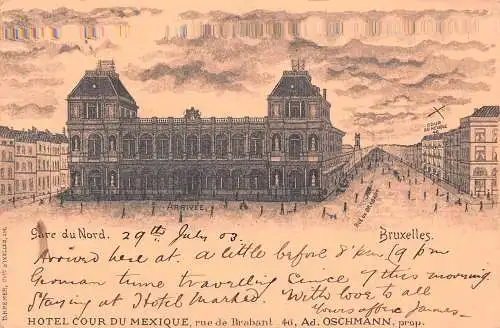 COUR
DU MEXIQUE
ARRIVÉE
RUE DU BRABANT
Gare du Nord. 29th July 03. Bruxelles.
Arrived here at. a little before 8 pm / 9 pm
German time travelling since 5 this morning.
Staying at Hotel Marked. With love to all
Yours affec James
HOTEL COUR DU MEXIQUE, rue de Brabant 46, Ad. OSCHMANN, prop.